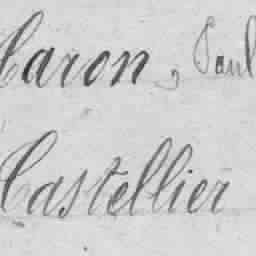 Caron, Paul
Castellier